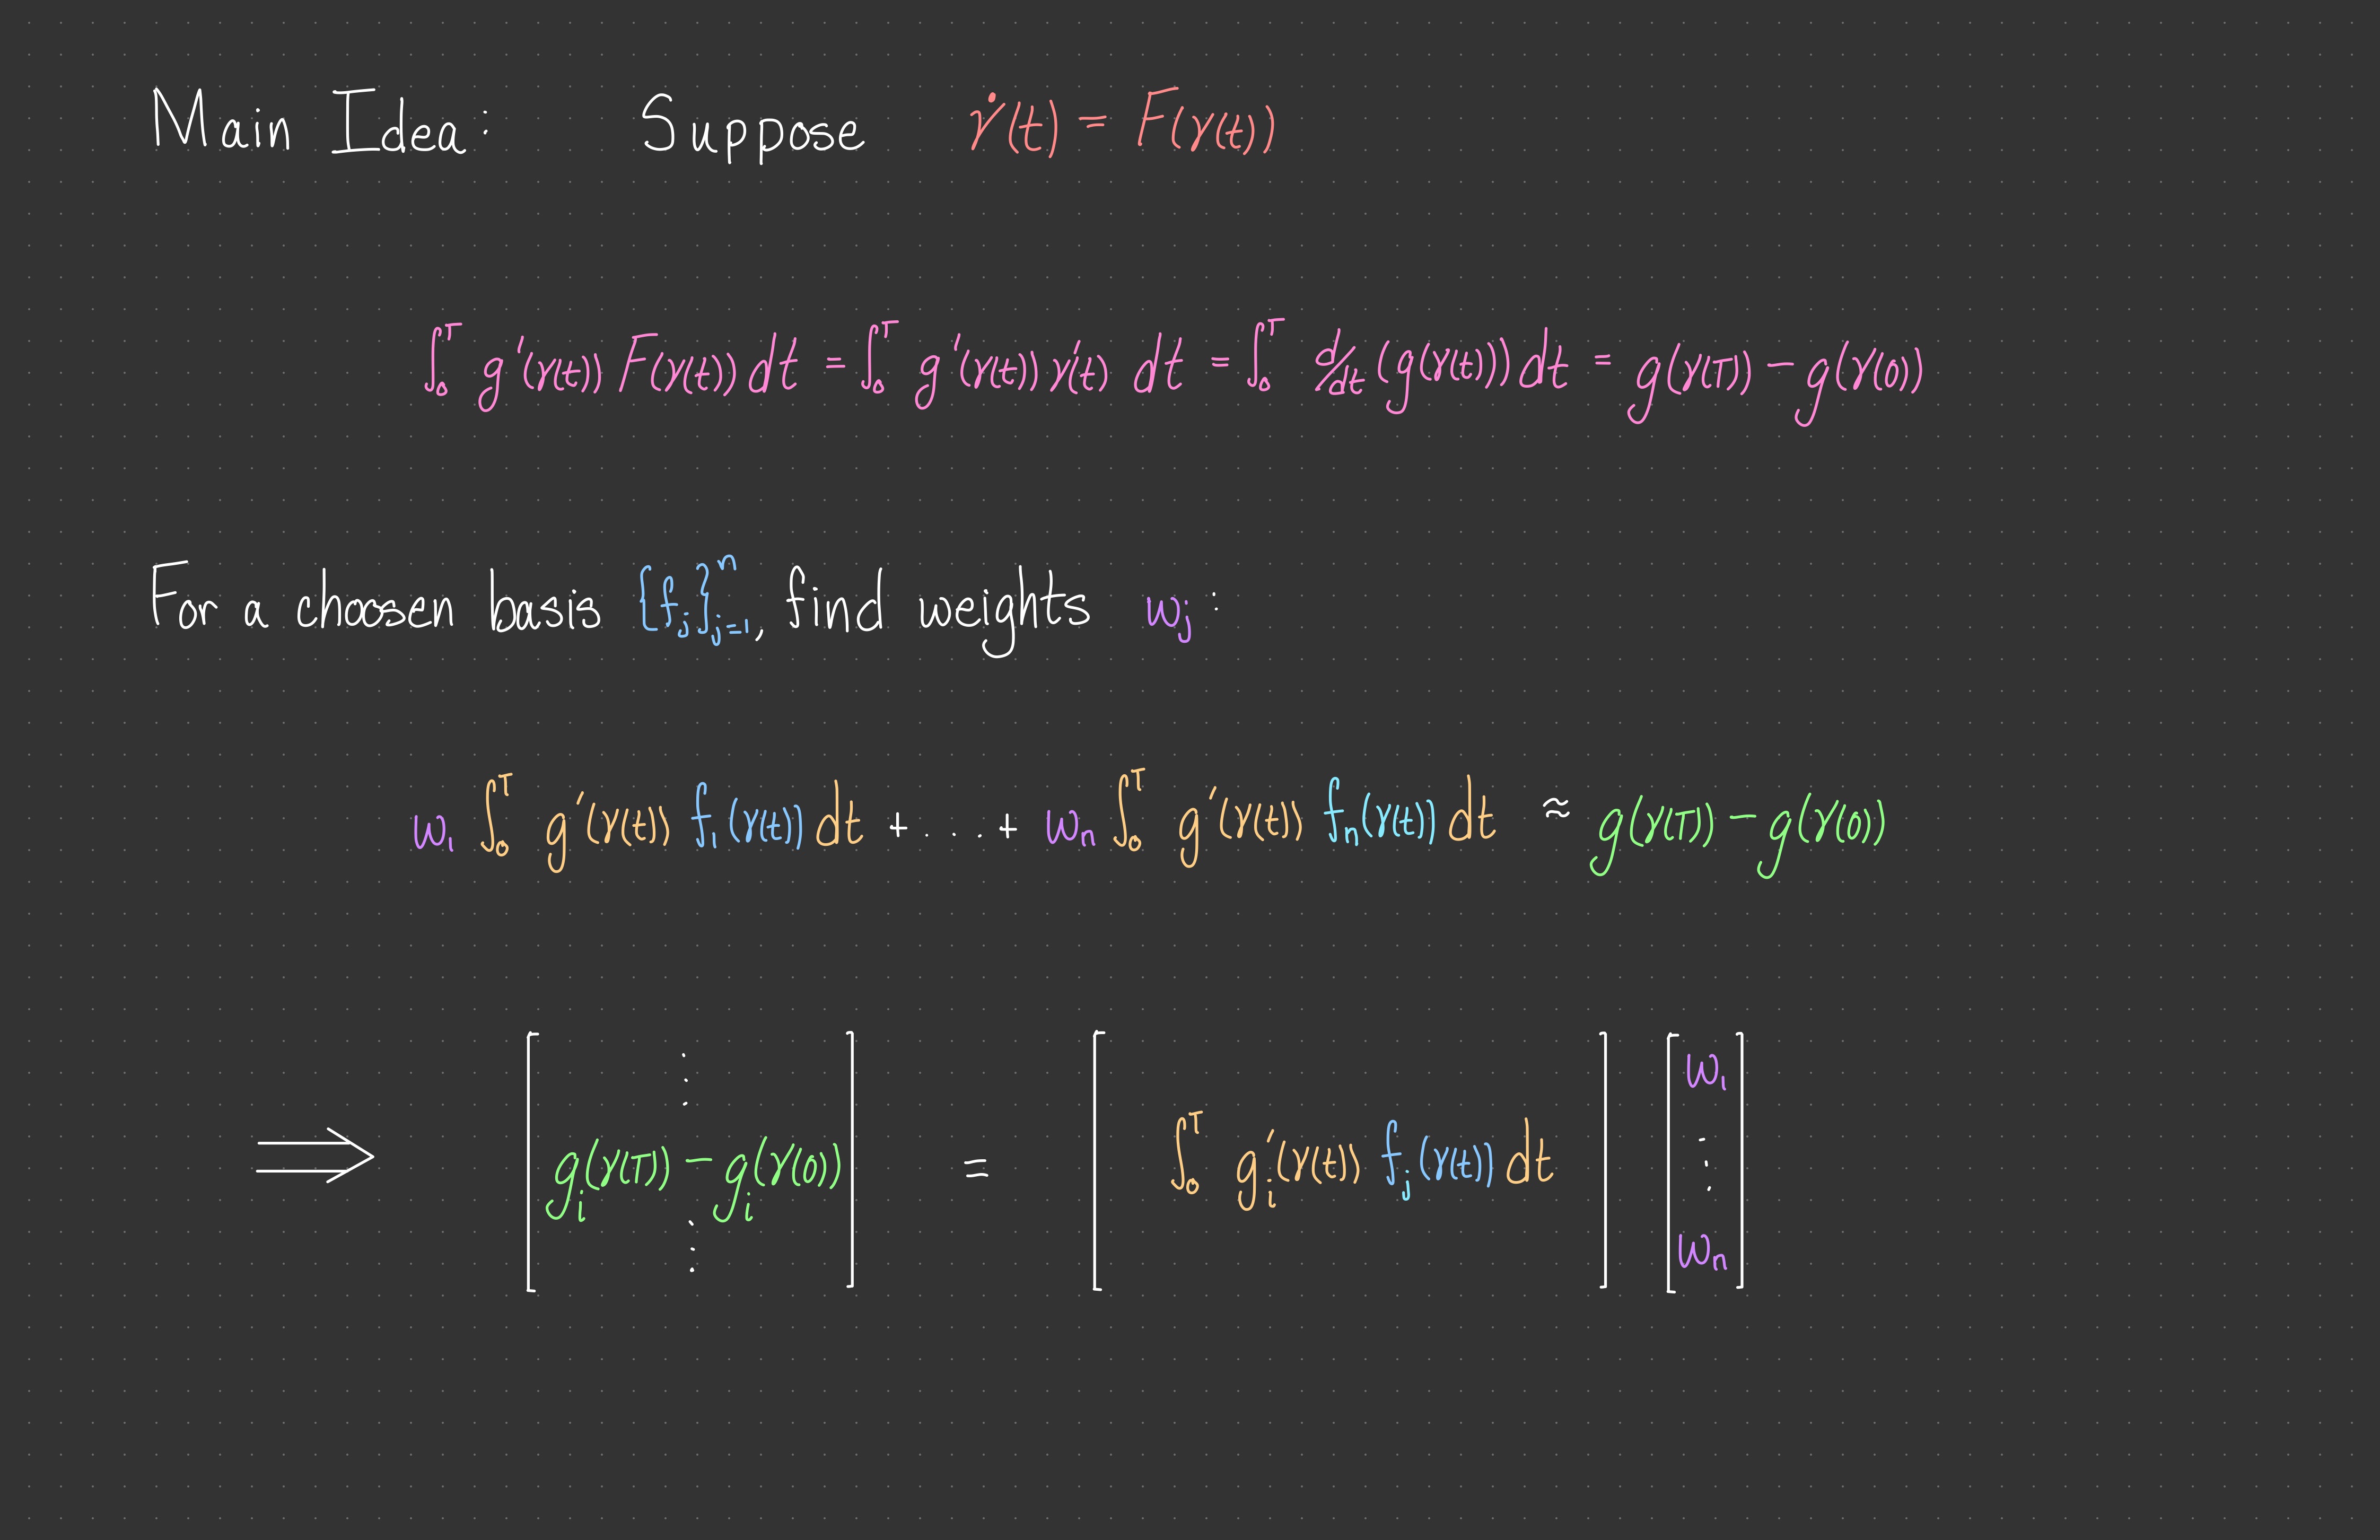 Main Idea: Suppose γ̇(t) = F(γ(t))
∫₀ᵀ g'(γ(t)) F(γ(t)) dt = ∫₀ᵀ g'(γ(t)) γ'(t) dt = ∫₀ᵀ d/dt (g(γ(t))) dt = g(γ(T)) - g(γ(0))
For a chosen basis {f_j}_{j=1}^n, find weights w_j:
w₁ ∫₀ᵀ g'(γ(t)) f₁(γ(t)) dt + ... + w_n ∫₀ᵀ g'(γ(t)) f_n(γ(t)) dt ≈ g(γ(T)) - g(γ(0))
⟹ [⋮ g_i(γ(T)) - g_i(γ(0)) ⋮] = [∫₀ᵀ g_i'(γ(t)) f_j(γ(t)) dt] [w₁ ⋮ w_n]